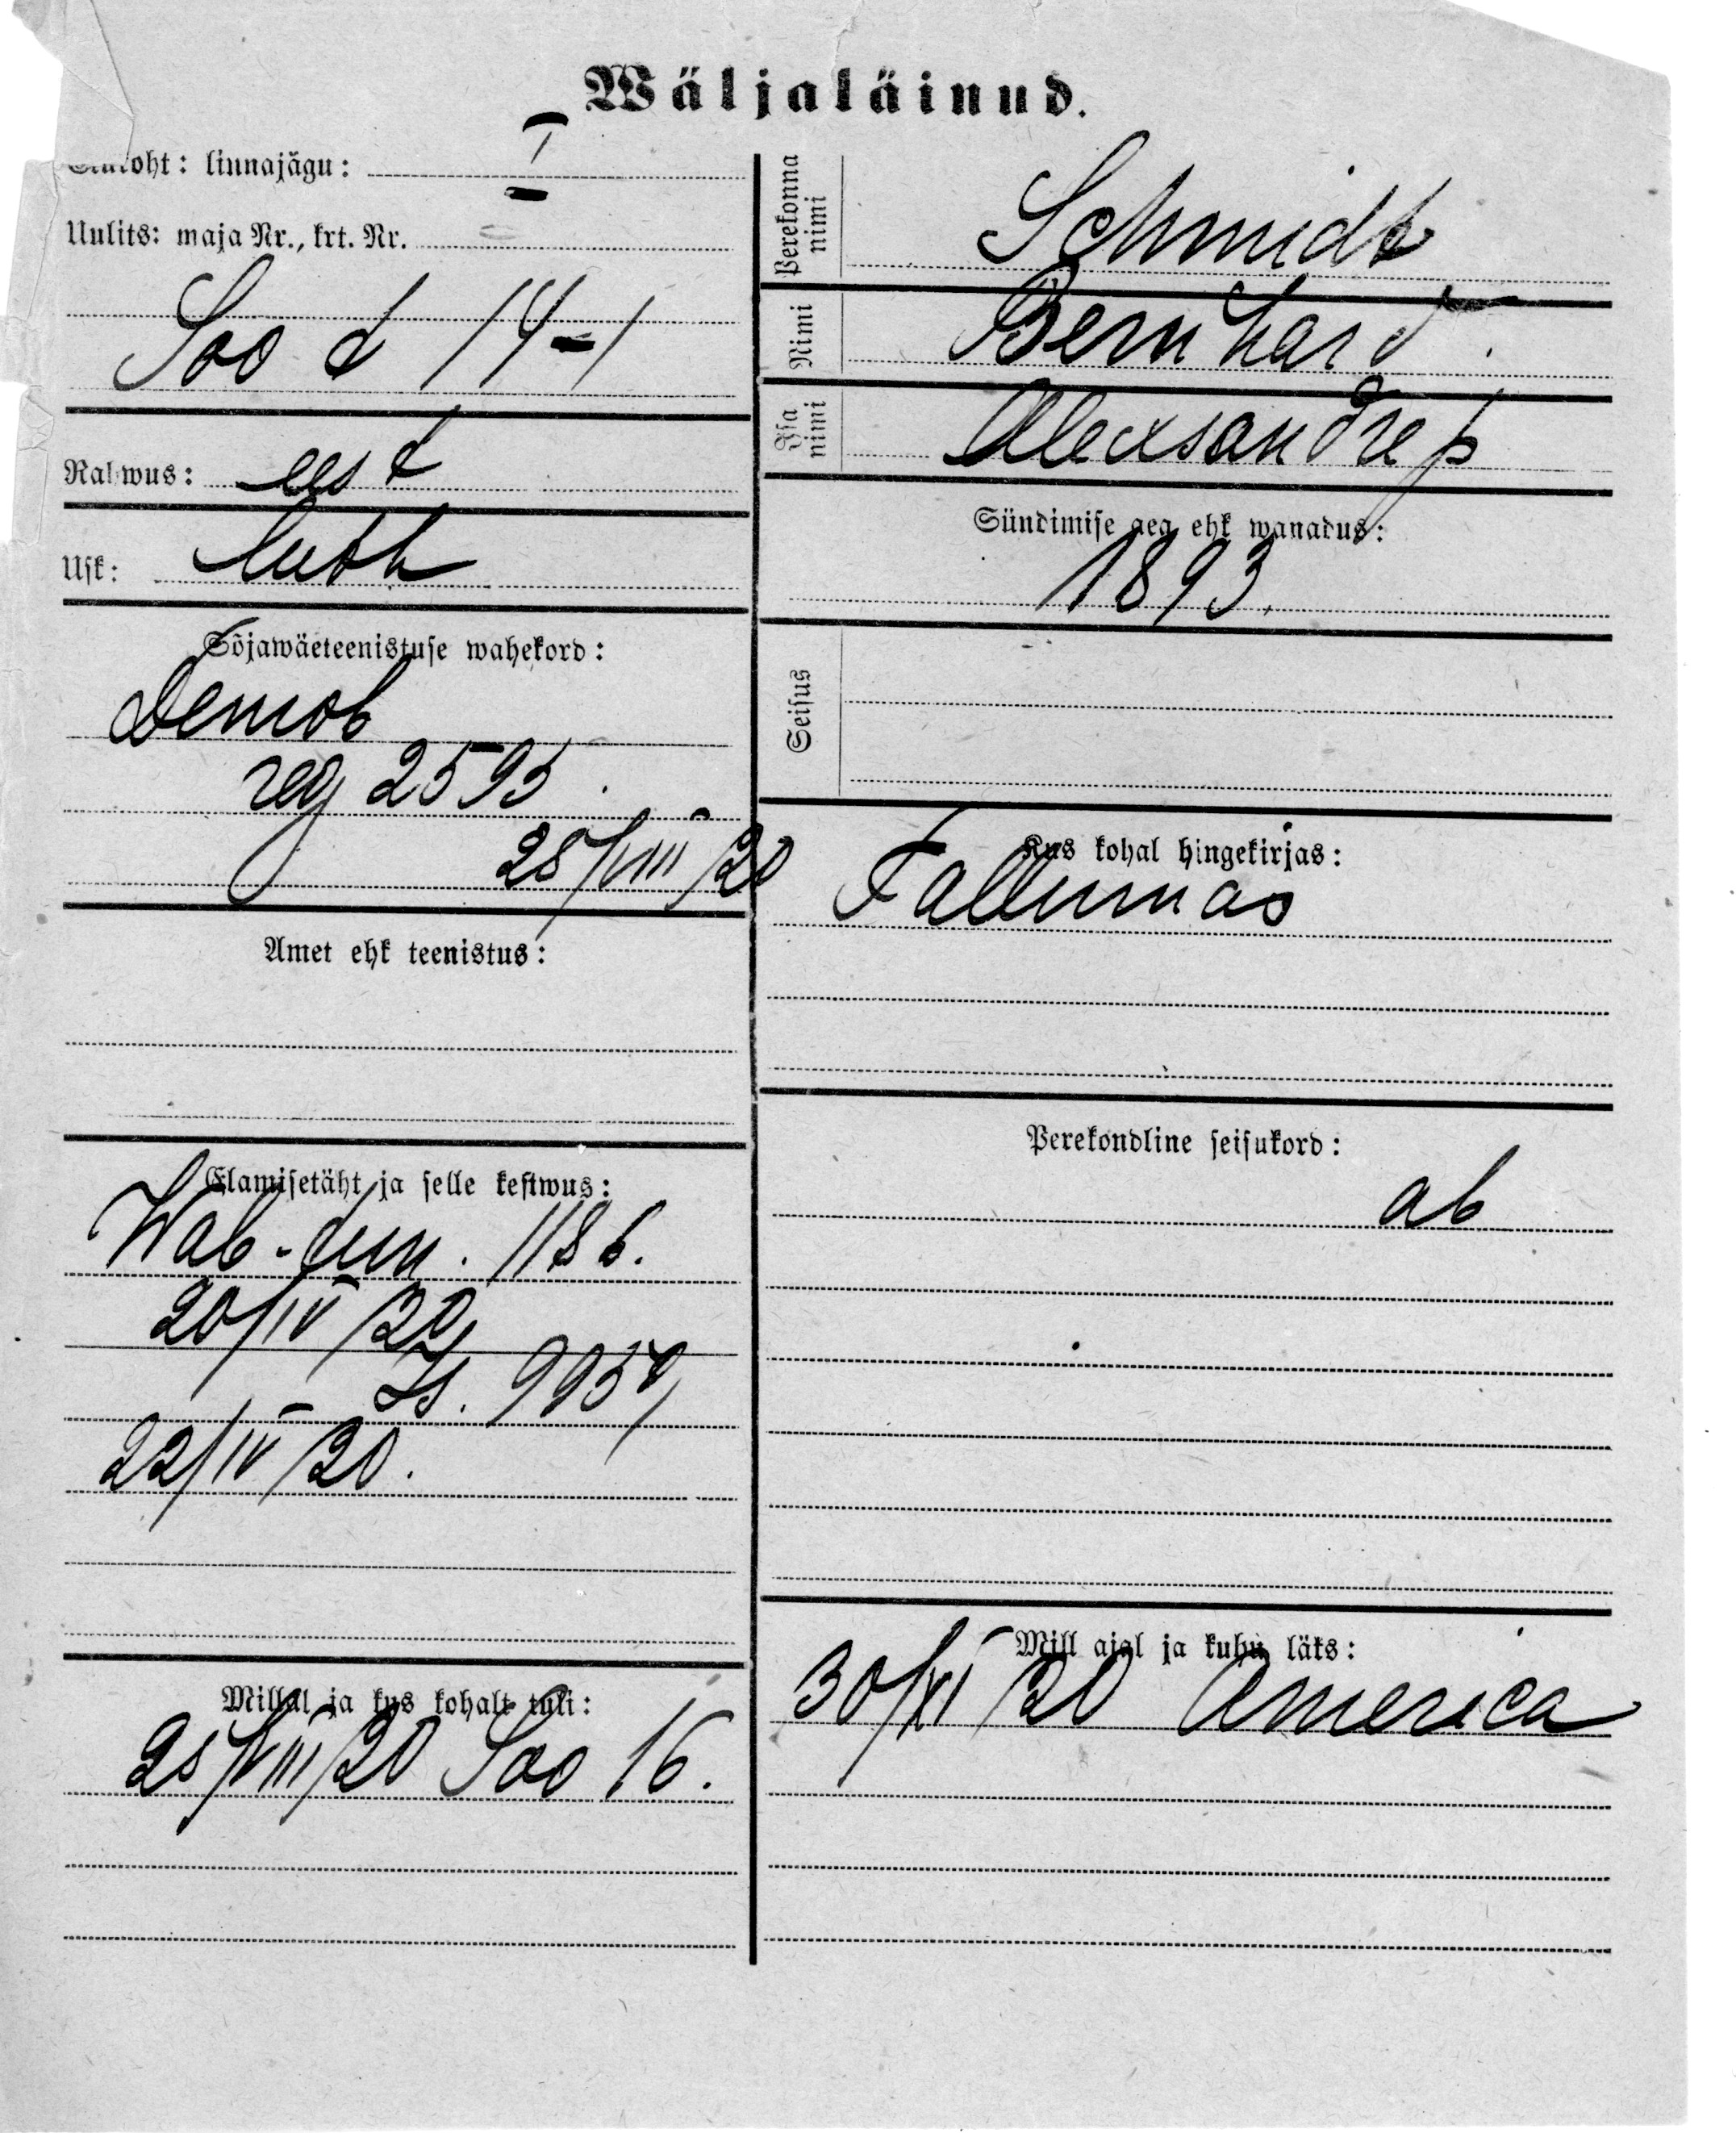 Wäljaläinud.
oht: linnajägu: I
Uulits: maja Nr., krt. Nr.
Soo d 14-1
Rahwus: eest
Usk: luth
Sõjawäeteenistuse wahekord:
Demob
reg 2595
28/VIII/20
Amet ehk teenistus:
Elamisetäht ja selle kestwus:
Wab-dun. 1186.
20/IV/20
Is. 9954
22/IV/20.
Millal ja kus kohalt tuli:
28/VIII/20 Soo 16.
Perekonna nimi
Schmidt
Nimi
Bernhard.
Isa nimi
Alexsandre p
Sündimise aeg ehk wanadus:
1893.
Seisus
Kus kohal hingekirjas:
Tallinnas
Perekondline seisukord:
ab
Mill ajal ja kuhu läks:
30/XI/20 America